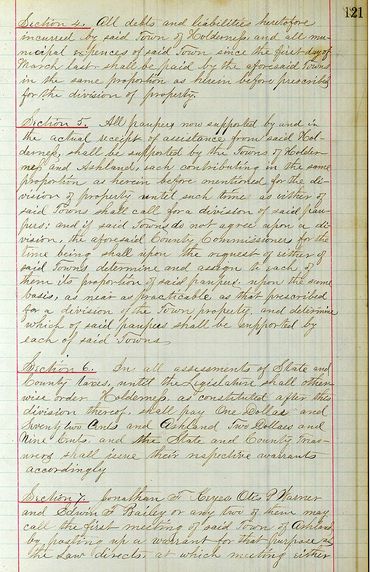 121
Section 4. All debts and liabilities heretofore
incurred by said Town of Holderness and all mu-
nicipal expences of said Town since the first day of
March last shall be paid by the aforesaid Towns
in the same proportion as herein before prescribed
for the division of property.
Section 5. All paupers now supported by and in
the actual receipt of assistance from said Hol-
derness, shall be supported by the Towns of Holder-
ness and Ashland, each contributing in the same
proportion as herein before mentioned for the di-
vision of property until such time as either of
said Towns shall call for a division of said pau-
pers; and if said Towns do not agree upon a di-
vision, the aforesaid County Commissioners for the
time being shall upon the request of either of
said Towns determine and assign to each of
them its proportion of said paupers upon the same
basis, as near as practicable as that prescribed
for a division of the Town property, and determine
which of said paupers shall be supported by
each of said Towns
Section 6. In all assessments of State and
County taxes, until the Legislature shall other-
wise order Holderness, as constituted after the
division thereof, shall pay One Dollar and
Seventy two Cents and Ashland Two Dollars and
Nine Cents. and the State and County Treas-
urers shall issue their respective warrants
accordingly
Section 7. Jonathan F. Keyes Otis P Warner
and Edwin F Bailey or any two of them may
call the first meeting of said Town of Ashland
by posting up a warrant for that purpose as
the Law directs at which meeting either